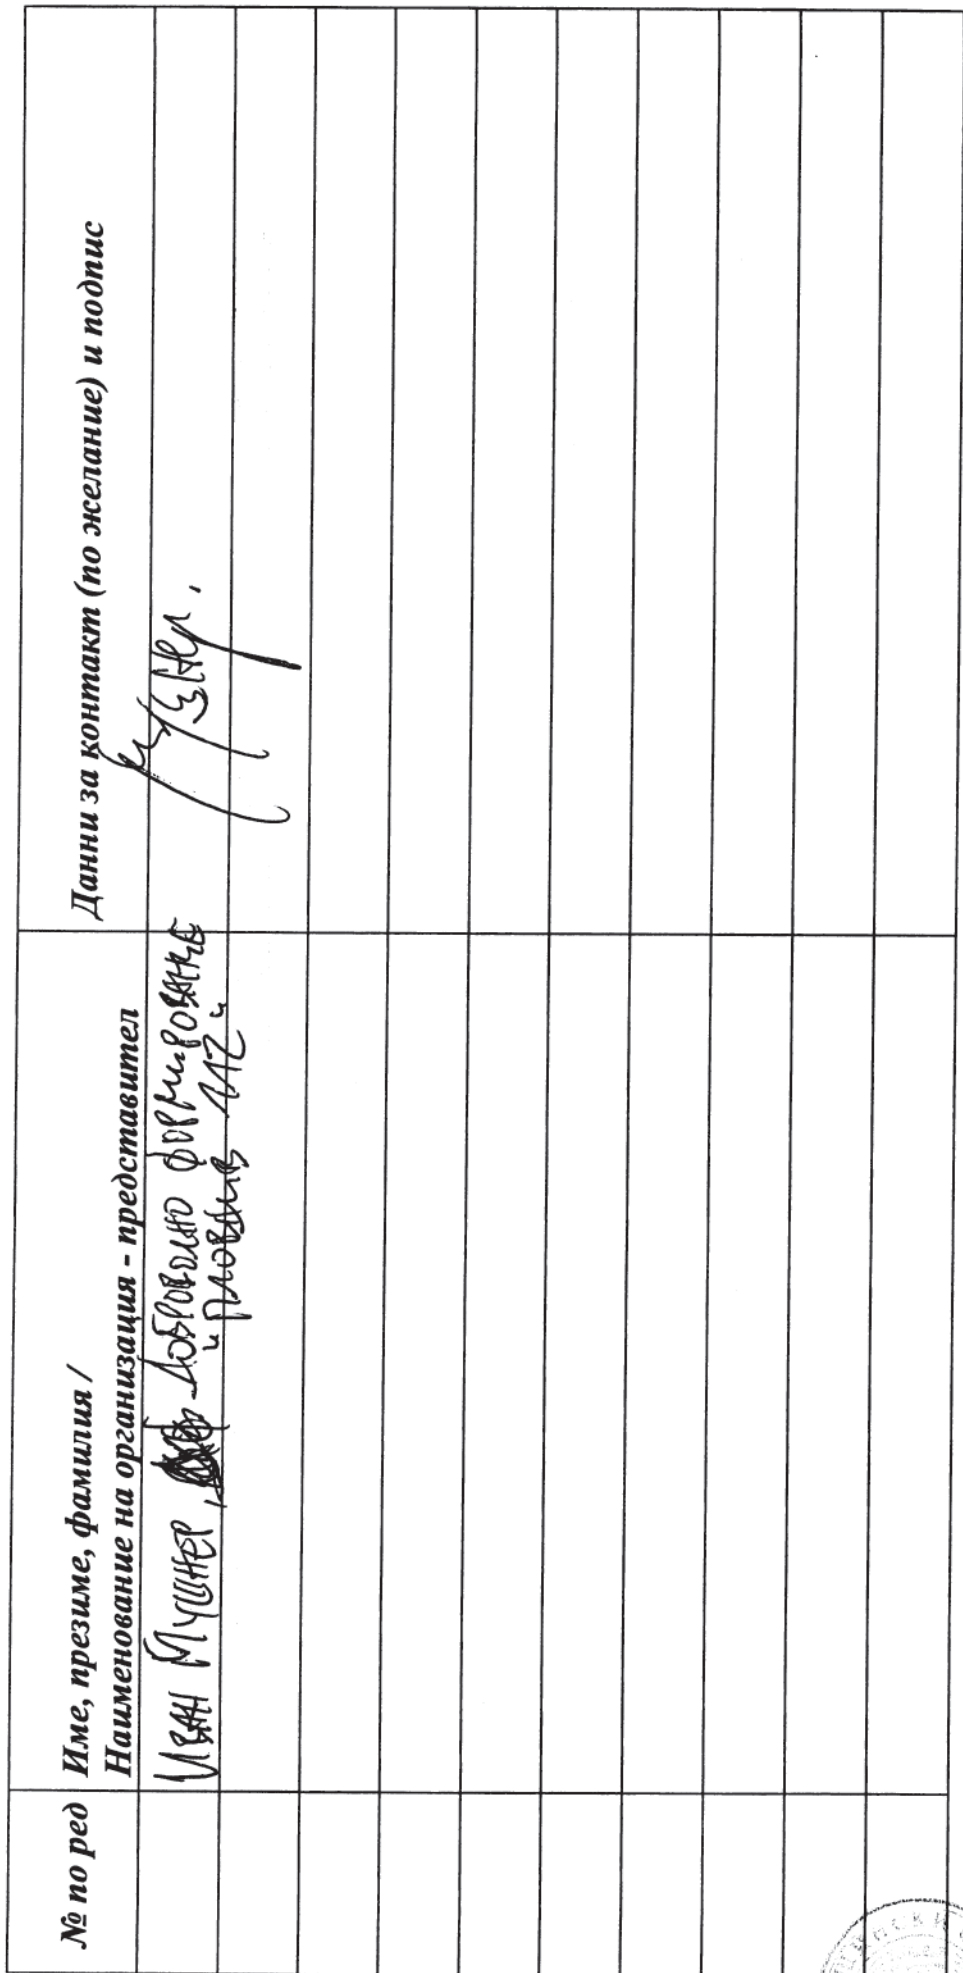 № по ред
Име, презиме, фамилия /
Наименование на организация - представител
Данни за контакт (по желание) и подпис
Иван Мушнер, - Доброволно формирование
"Пловдив 112"